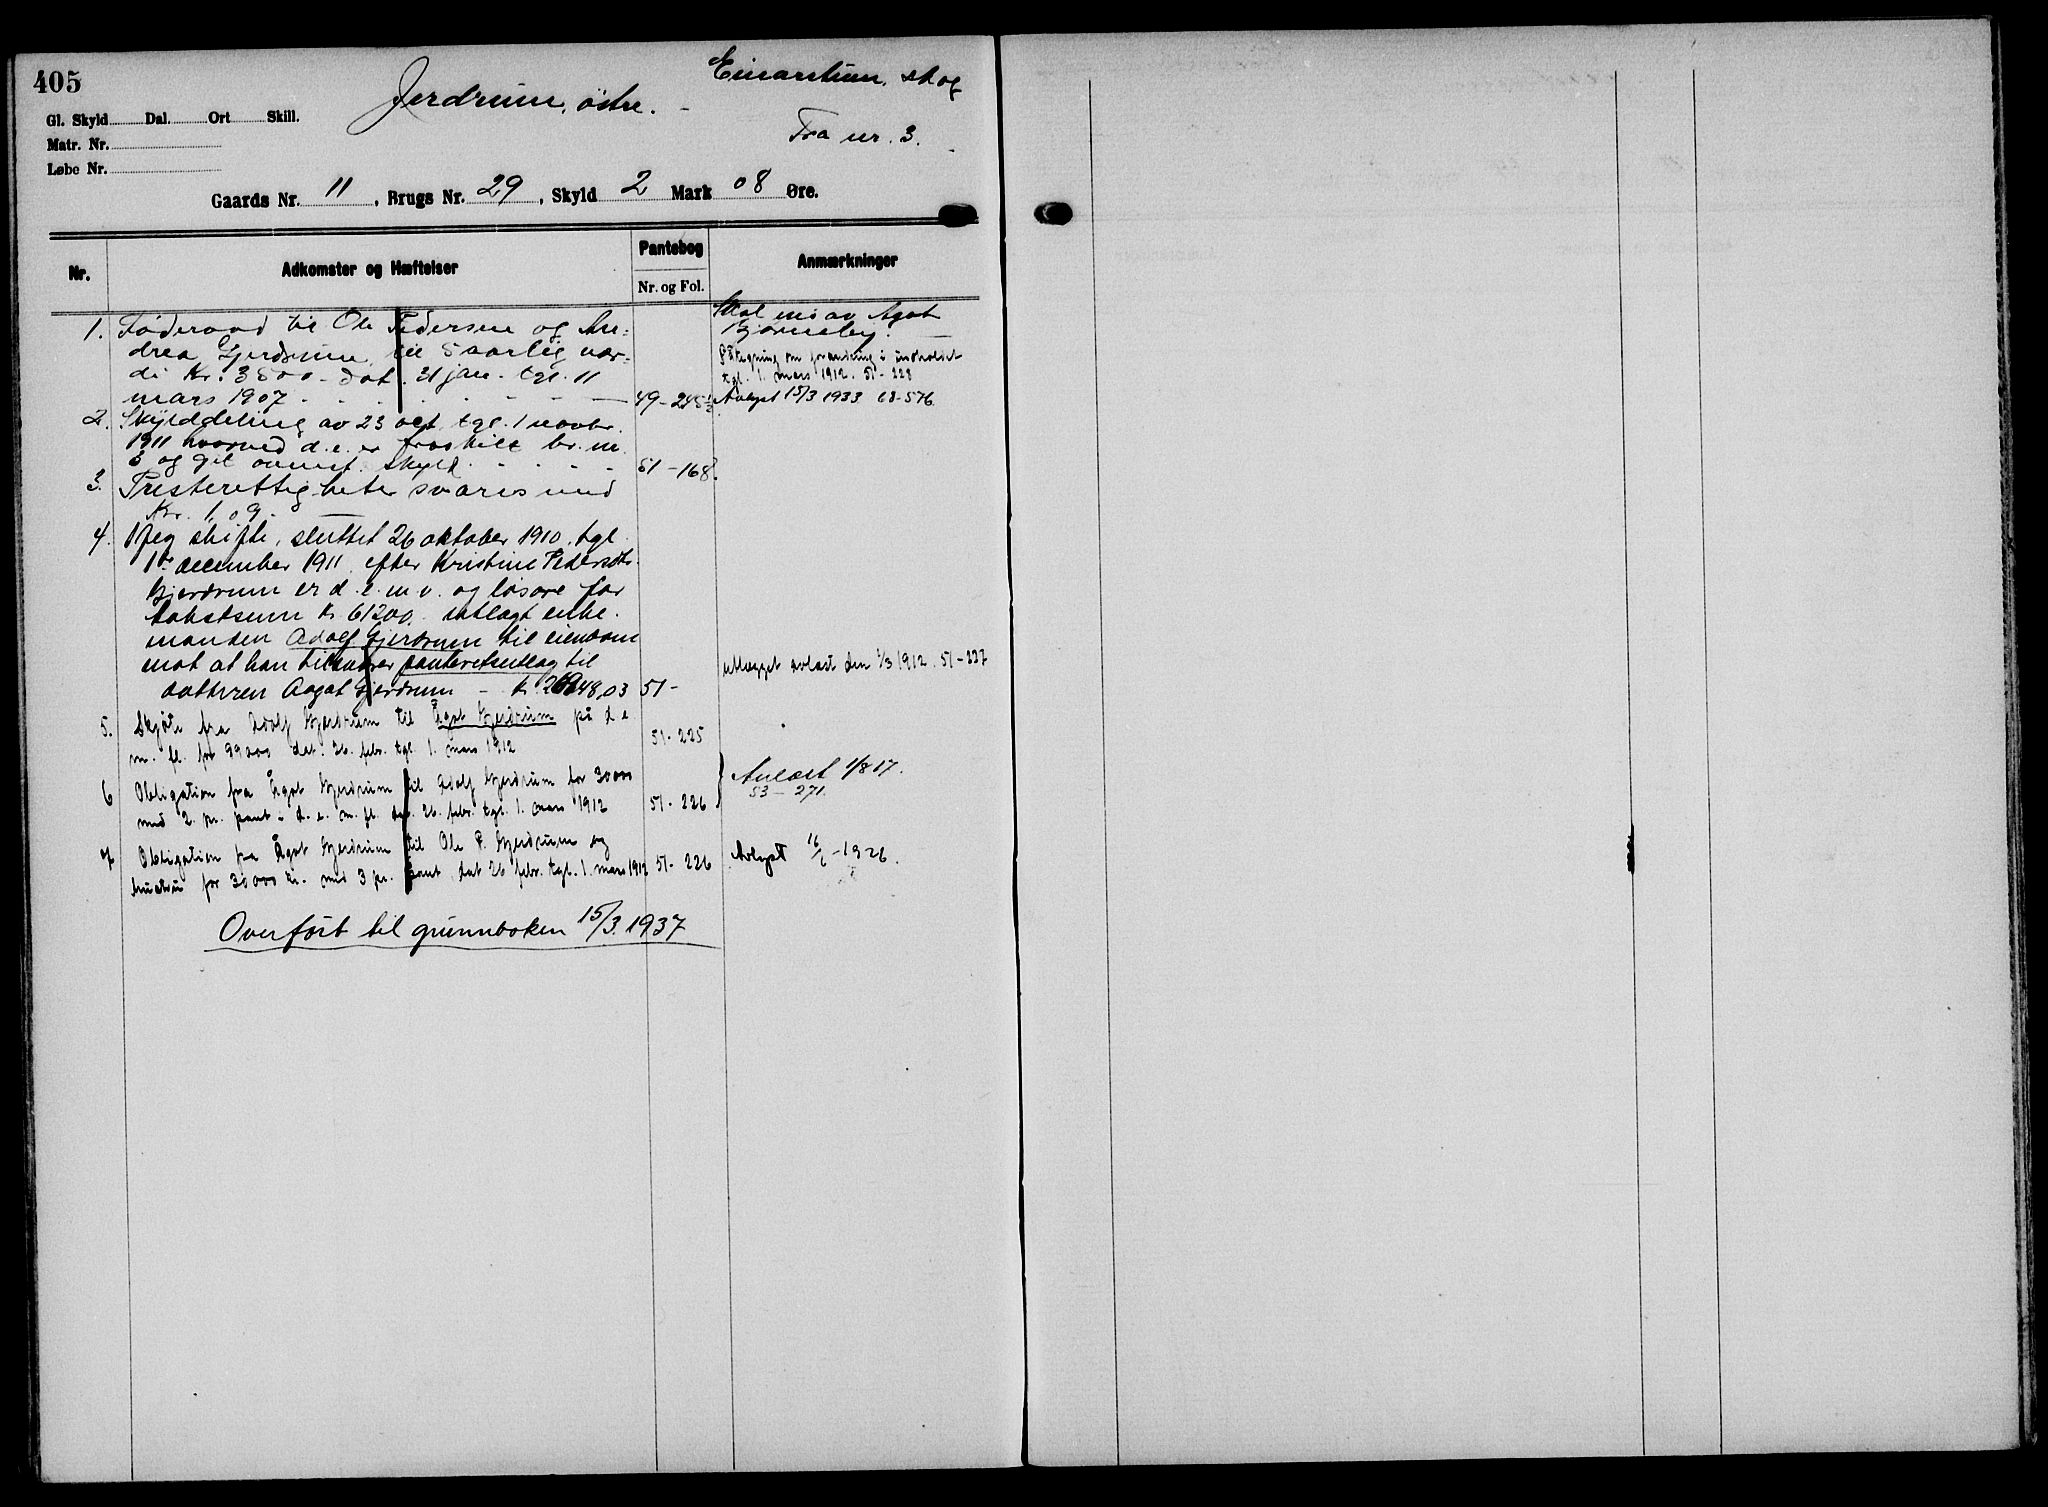 405
Jerdrum, østre. - Einarstun, skog
Fra nr. 3.
Gl. Skyld Dal. Ort Skill.
Matr. Nr.
Løbe Nr.
Gaards Nr. 11, Brugs Nr. 29, Skyld 2 Mark 08 Øre.
Nr. Adkomster og Hæftelser Pantebog Anmærkninger
Nr. og Fol.
1. Føderaad til Ole Pedersen og An-
drea Gjerdrum til 5 aarlig vær-
di Kr. 3500 - dat. 31 jan. tgl. 11
mars 1907 49-245½
av Agot
Bjørneby.
Påtegning om forandring i indholdet
tgl. 1. mars 1912. 51-228
Avlyst 15/3 1933 68-576
2. Skylddeling av 23 oct. tgl. 1 novbr.
1911 hvorved d. e. er fraskilt br. nr.
3 og git ovennt. skyld. 51-168
3. Tresterettigheter svares med
Kr. 1.09.
4. Ved skifte, sluttet 26 oktober 1910, tgl.
1ste december 1911, efter Kristine Pedersdtr.
Gjerdrum er d. e. m. v. og løsøre for
takstsum kr. 61200. utlagt enke-
manden Adolf Gjerdrum til eiendom
mot at han tilsvarer panteretsutlæg til
datteren Aagot Gjerdrum - kr. 48,03 51-
utlægget avlæst den 1/3 1912. 51-227
5. Skjøte fra Adolf Gjerdrum til Ågot Gjerdrum på d. e.
m. fl. for 99200 dat. 26. febr. tgl. 1. mars 1912 51-225
6 Obligation fra Ågot Gjerdrum til Adolf Gjerdrum for 30000
med 2. pr. pant i d. e. m. fl. dat. 26. febr. tgl. 1. mars 1912 51-226
Avlæst 1/8 17.
53-271.
7 Obligation fra Ågot Gjerdrum til Ole P. Gjerdrum og
hustru for 30000 kr. med 3 pr. pant dat 26 febr. tgl. 1. mars 1912 51-226
Avlyst 16/6-1926.
Overført til grunnboken 15/3. 1937